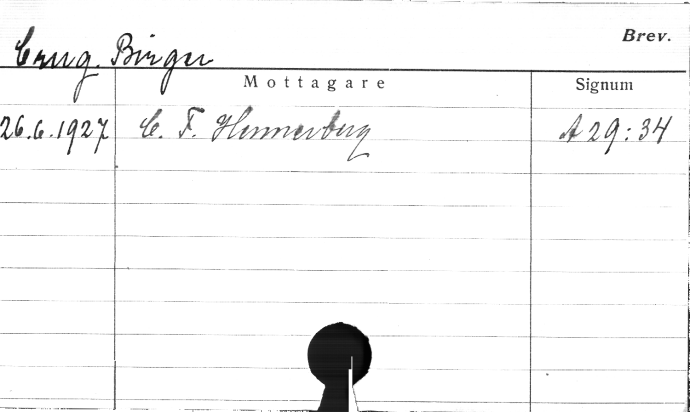 Brev.
Birger
Mottagare Signum
26.6.1927 C. F. Hennerberg A 29:34